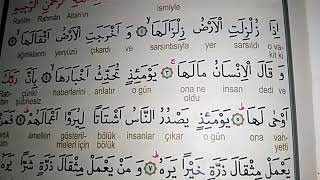 Rahîm Rahmân Allah'ın ismiyle
اِذَا زُلْزِلَتِ الْاَرْضُ زِلْزَالَهَا وَ اَخْرَجَتِ الْاَرْضُ اَثْقَالَهَا
ağırlıklarını yeryüzü çıkardı ve sarsıntısıyla yer sarsıldı o vakit ki
وَ قَالَ الْاِنْسَانُ مَالَهَا يَوْمَئِذٍ تُحَدِّثُ اَخْبَارَهَا بِاَنَّ رَبَّكَ
şüphesiz haberlerini anlatır o gün ona ne oluyor insan dedi ve
اَوْحٰى لَهَا يَوْمَئِذٍ يَصْدُرُ النَّاسُ اَشْتَاتًا لِيُرَوْا اَعْمَالَهُمْ
amelleri gösterilmeleri için bölük bölük insanlar çıkar o gün ona vahyetti
يَعْمَلْ مِثْقَالَ ذَرَّةٍ خَيْرًا يَرَهُ ٧ وَ مَنْ يَعْمَلْ مِثْقَالَ ذَرَّةٍ شَرًّا يَرَهُ